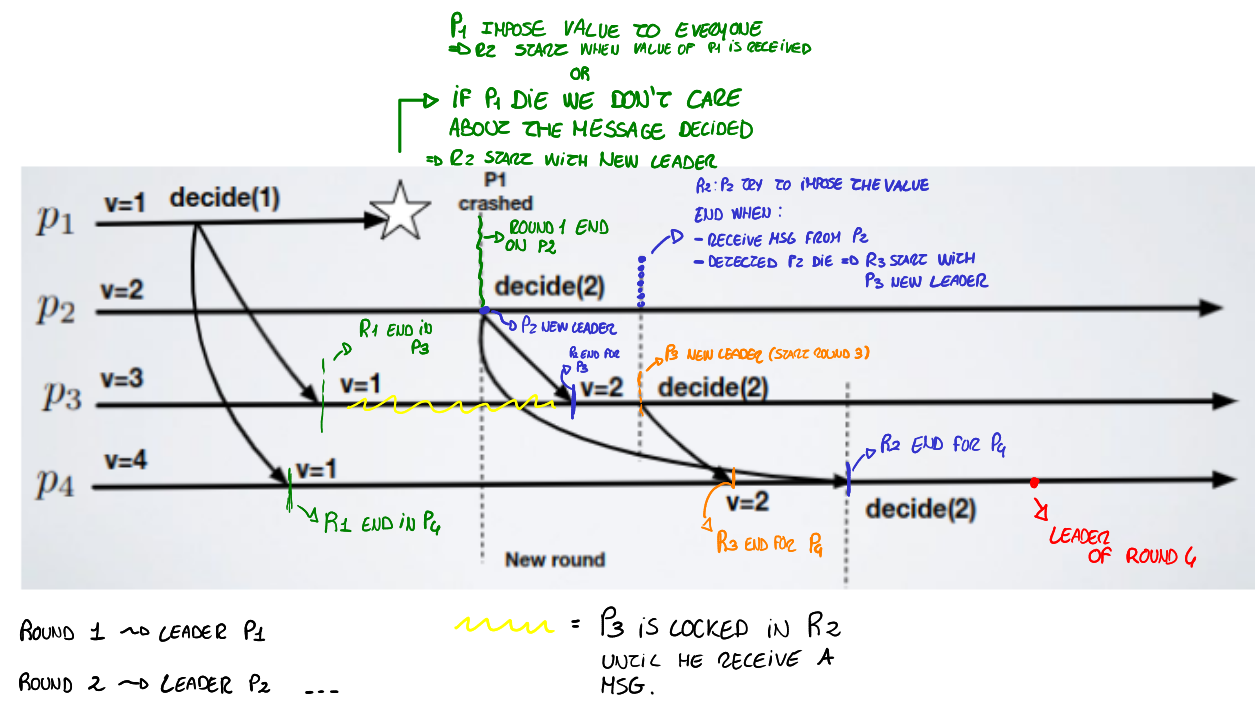 P1 IMPOSE VALUE TO EVERYONE
⇒ R2 START WHEN VALUE OF P1 IS RECEIVED
OR
IF P1 DIE WE DON'T CARE
ABOUT THE MESSAGE DECIDED
⇒ R2 START WITH NEW LEADER
P1
crashed
R2: P2 TRY TO IMPOSE THE VALUE
END WHEN:
- RECEIVE MSG FROM P2
- DETECTED P2 DIE ⇒ R3 START WITH
P3 NEW LEADER
p1
v=1
decide(1)
ROUND 1 END
ON P2
p2
v=2
decide(2)
P2 NEW LEADER
R1 END IN
P3
R2 END FOR
P3
P3 NEW LEADER (START ROUND 3)
p3
v=3
v=1
v=2
decide(2)
p4
v=4
v=1
R2 END FOR P4
R1 END IN P4
v=2
decide(2)
R3 END FOR P4
LEADER
OF ROUND 4
New round
ROUND 1 → LEADER P1
= P3 IS LOCKED IN R2
UNTIL HE RECEIVE A
MSG.
ROUND 2 → LEADER P2 ---